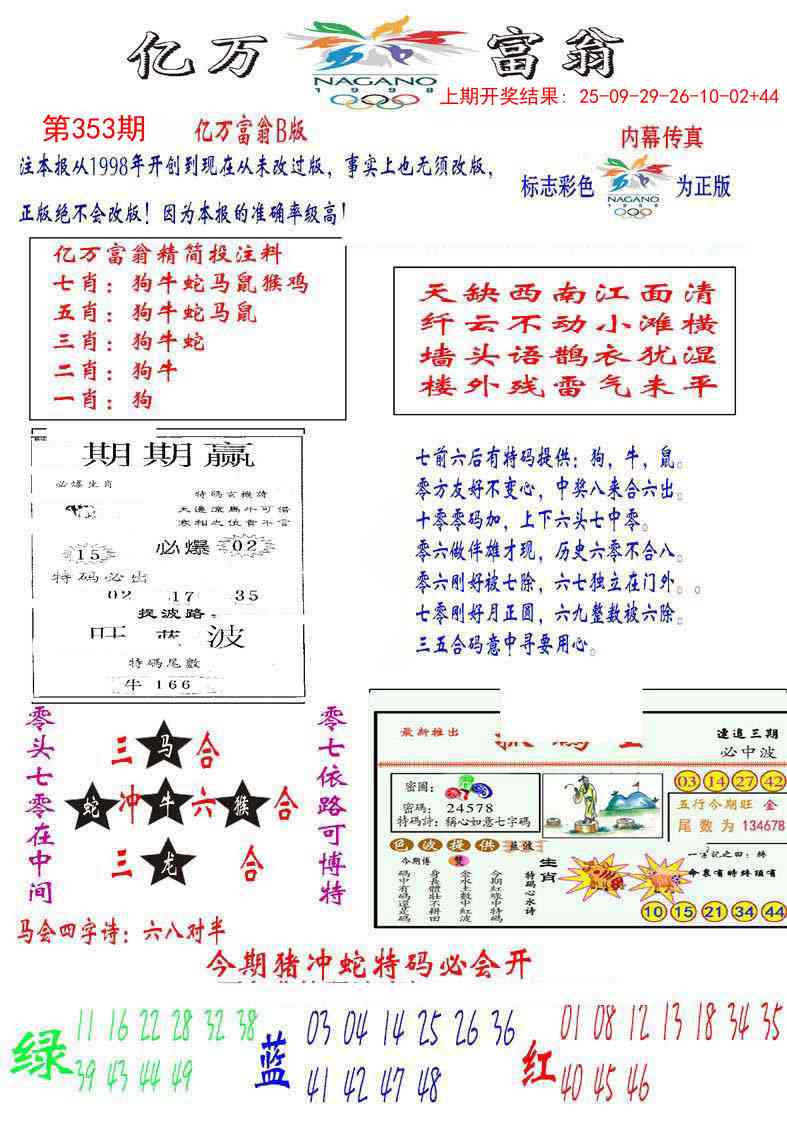 亿万 富翁
NAGANO
1998
上期开奖结果: 25-09-29-26-10-02+44
第353期 亿万富翁B版
内幕传真
注本报从1998年开创到现在从未改过版，事实上也无须改版，
标志彩色 NAGANO 1998 为正版
正版绝不会改版！因为本报的准确率级高！
亿万富翁精简投注料
七肖：狗牛蛇马鼠猴鸡
五肖：狗牛蛇马鼠
三肖：狗牛蛇
二肖：狗牛
一肖：狗
天缺西南江面清
纤云不动小滩横
墙头语鹊衣犹湿
楼外残雷气未平
期期赢
必爆生肖
特码玄機詩
天邊流馬牛可借
寒相之位貴不言
15 必爆 02
特码必出
02 17 35
捉波路
旺 蓝 波
特碼尾數
牛 166
七前六后有特码提供：狗，牛，鼠。
零方友好不变心，中奖八来合六出。
十零零码加，上下六头七中零。
零六做伴雄才现，历史六零不合八。
零六刚好被七除，六七独立在门外。。
七零刚好月正圆，六九整数被六除。
三五合码意中寻要用心。
零头七零在中间
三 马 合
蛇 冲 牛 六 猴 合
三 龙 合
零七依路可博特
最新推出
連追三期
必中波
密圖：
密碼： 24578
特码詩：稱心如意七字碼
03 14 27 42
五行今期旺 金
尾数为 134678
色波提供 蓝波
今期博 雙
碼中有碼還是碼
身長體壯不耕田
金水土數中紅波
今期紅緣中特碼
特碼心水诗
生肖
10 15 21 34 44
马会四字诗：六八对半
今期猪冲蛇特码必会开
绿
11 16 22 28 32 38
39 43 44 49
蓝
03 04 14 25 26 36
41 42 47 48
红
01 08 12 13 18 34 35
40 45 46